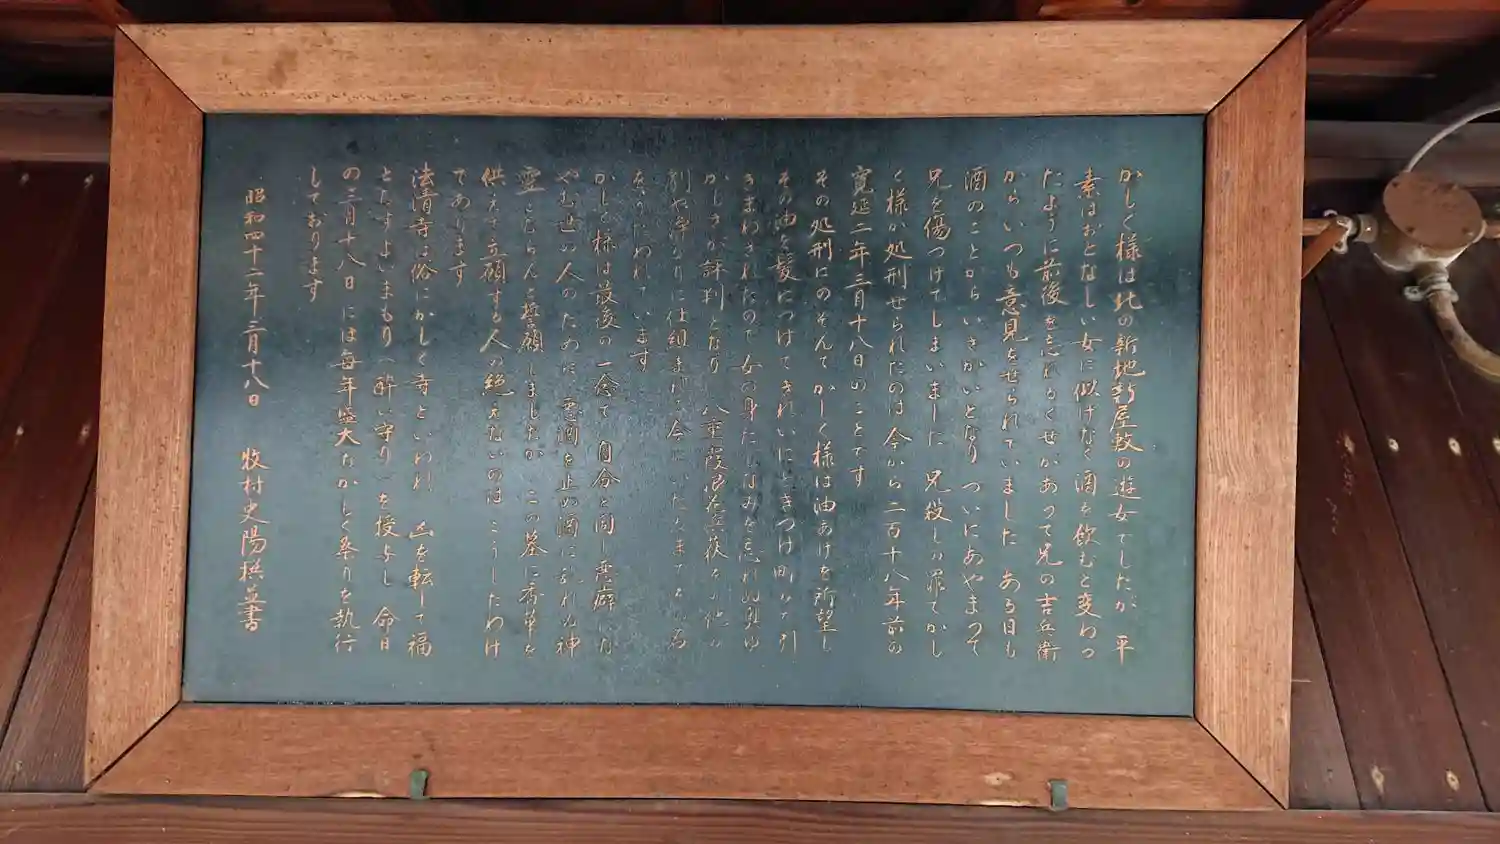 かしく様は北の新地新屋敷の遊女でしたが 平
素はおとなしい女に似けなく酒を飲むと変わっ
たように前後を忘れるくせがあって兄の吉兵衛
からいつも意見をせられていました ある日も
酒のことから いさかいとなり ついにあやまって
兄を傷つけてしまいました 兄殺しの罪でかし
く様が処刑せられたのは今から二百十八年前の
寛延二年三月十八日のことです
その処刑にのぞんで かしく様は油あげを所望し
その油を髪につけてきれいにときつけ町々を引
きまわされたので 女の身だしなみを忘れぬ奥ゆ
かしさが評判となり 八重霞浪花浜荻その他の
劇や浄るりに仕組まれて今にいたるまで
います
かしく様は最後の一念で 自分と同じ悪癖になや
やむ世の人のために 悪酒を止め酒に乱れぬ神
霊とならんと誓願しましたが この墓に香華を
供えて立願する人の絶えないのは こうしたわけ
であります
法清寺は俗にかしく寺といわれ 凶を転じて福
とするよいまもり(酔い守り)を授与し 命日
の三月十八日には毎年盛大なかしく祭りを執行
しております
昭和四十二年三月十八日 牧村史陽撰並書